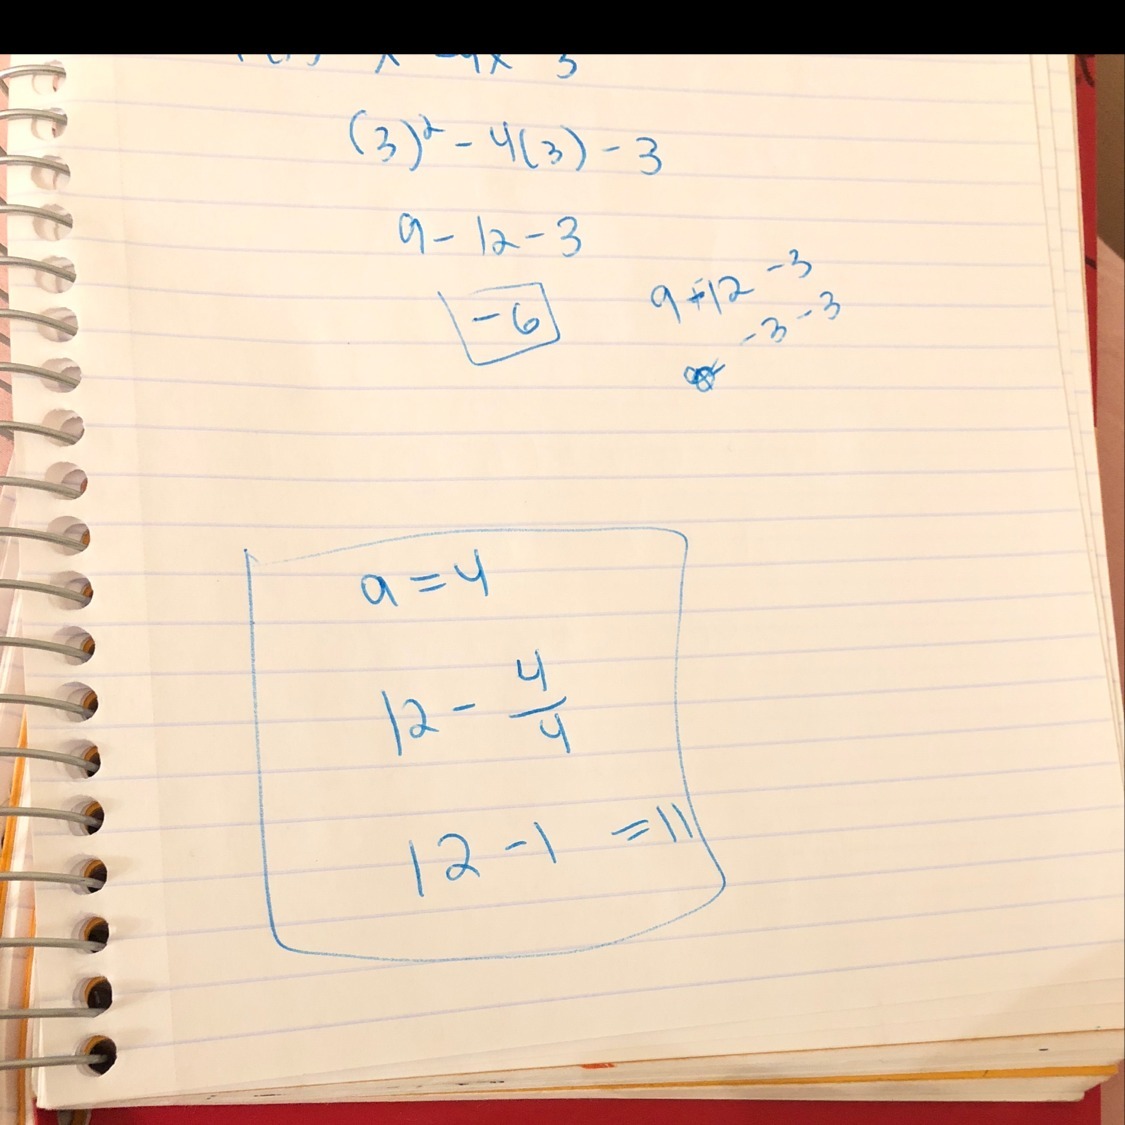 (3)² - 4(3) - 3
9 - 12 - 3
-6
9 + -12 - 3
-3 - 3
a = 4
12 - 4/4
12 - 1 = 11